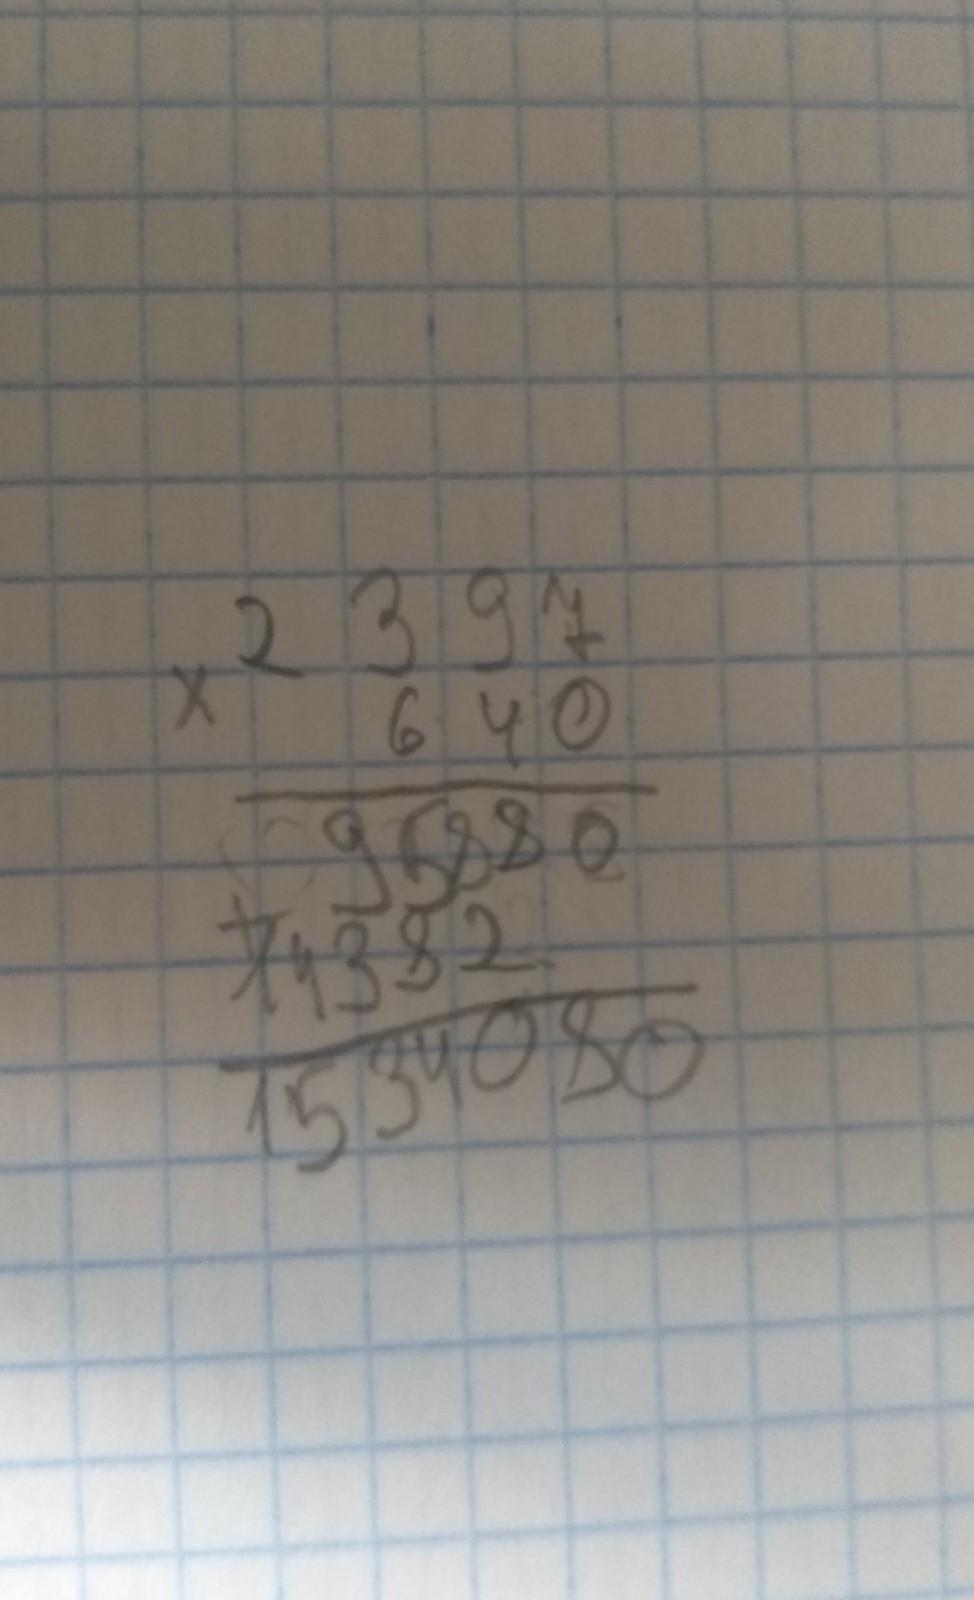 2397
× 640
95880
+14382
1534080